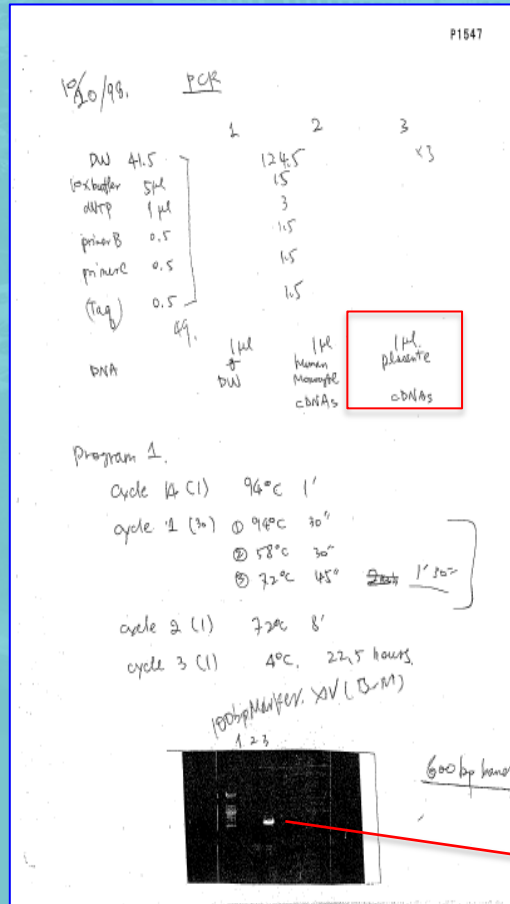 P1547
10/10/98. PCR
1 2 3
DW 41.5 124.5 ×3
10xbuffer 5μl 15
dNTP 1μl 3
primer B 0.5 1.5
primer C 0.5 1.5
(Taq) 0.5 1.5
49.
1μl 1μl 1μl
DNA DW human placente
Monocyte
cDNAs cDNAs
Program 1.
cycle 1A (1) 94°C 1'
cycle 1 (30) ① 94°C 30"
② 58°C 30"
③ 72°C 45" 1' 30"
cycle 2 (1) 72°C 8'
cycle 3 (1) 4°C. 22.5 hours.
100bp Marker. XIV (B-M)
1 2 3
600bp